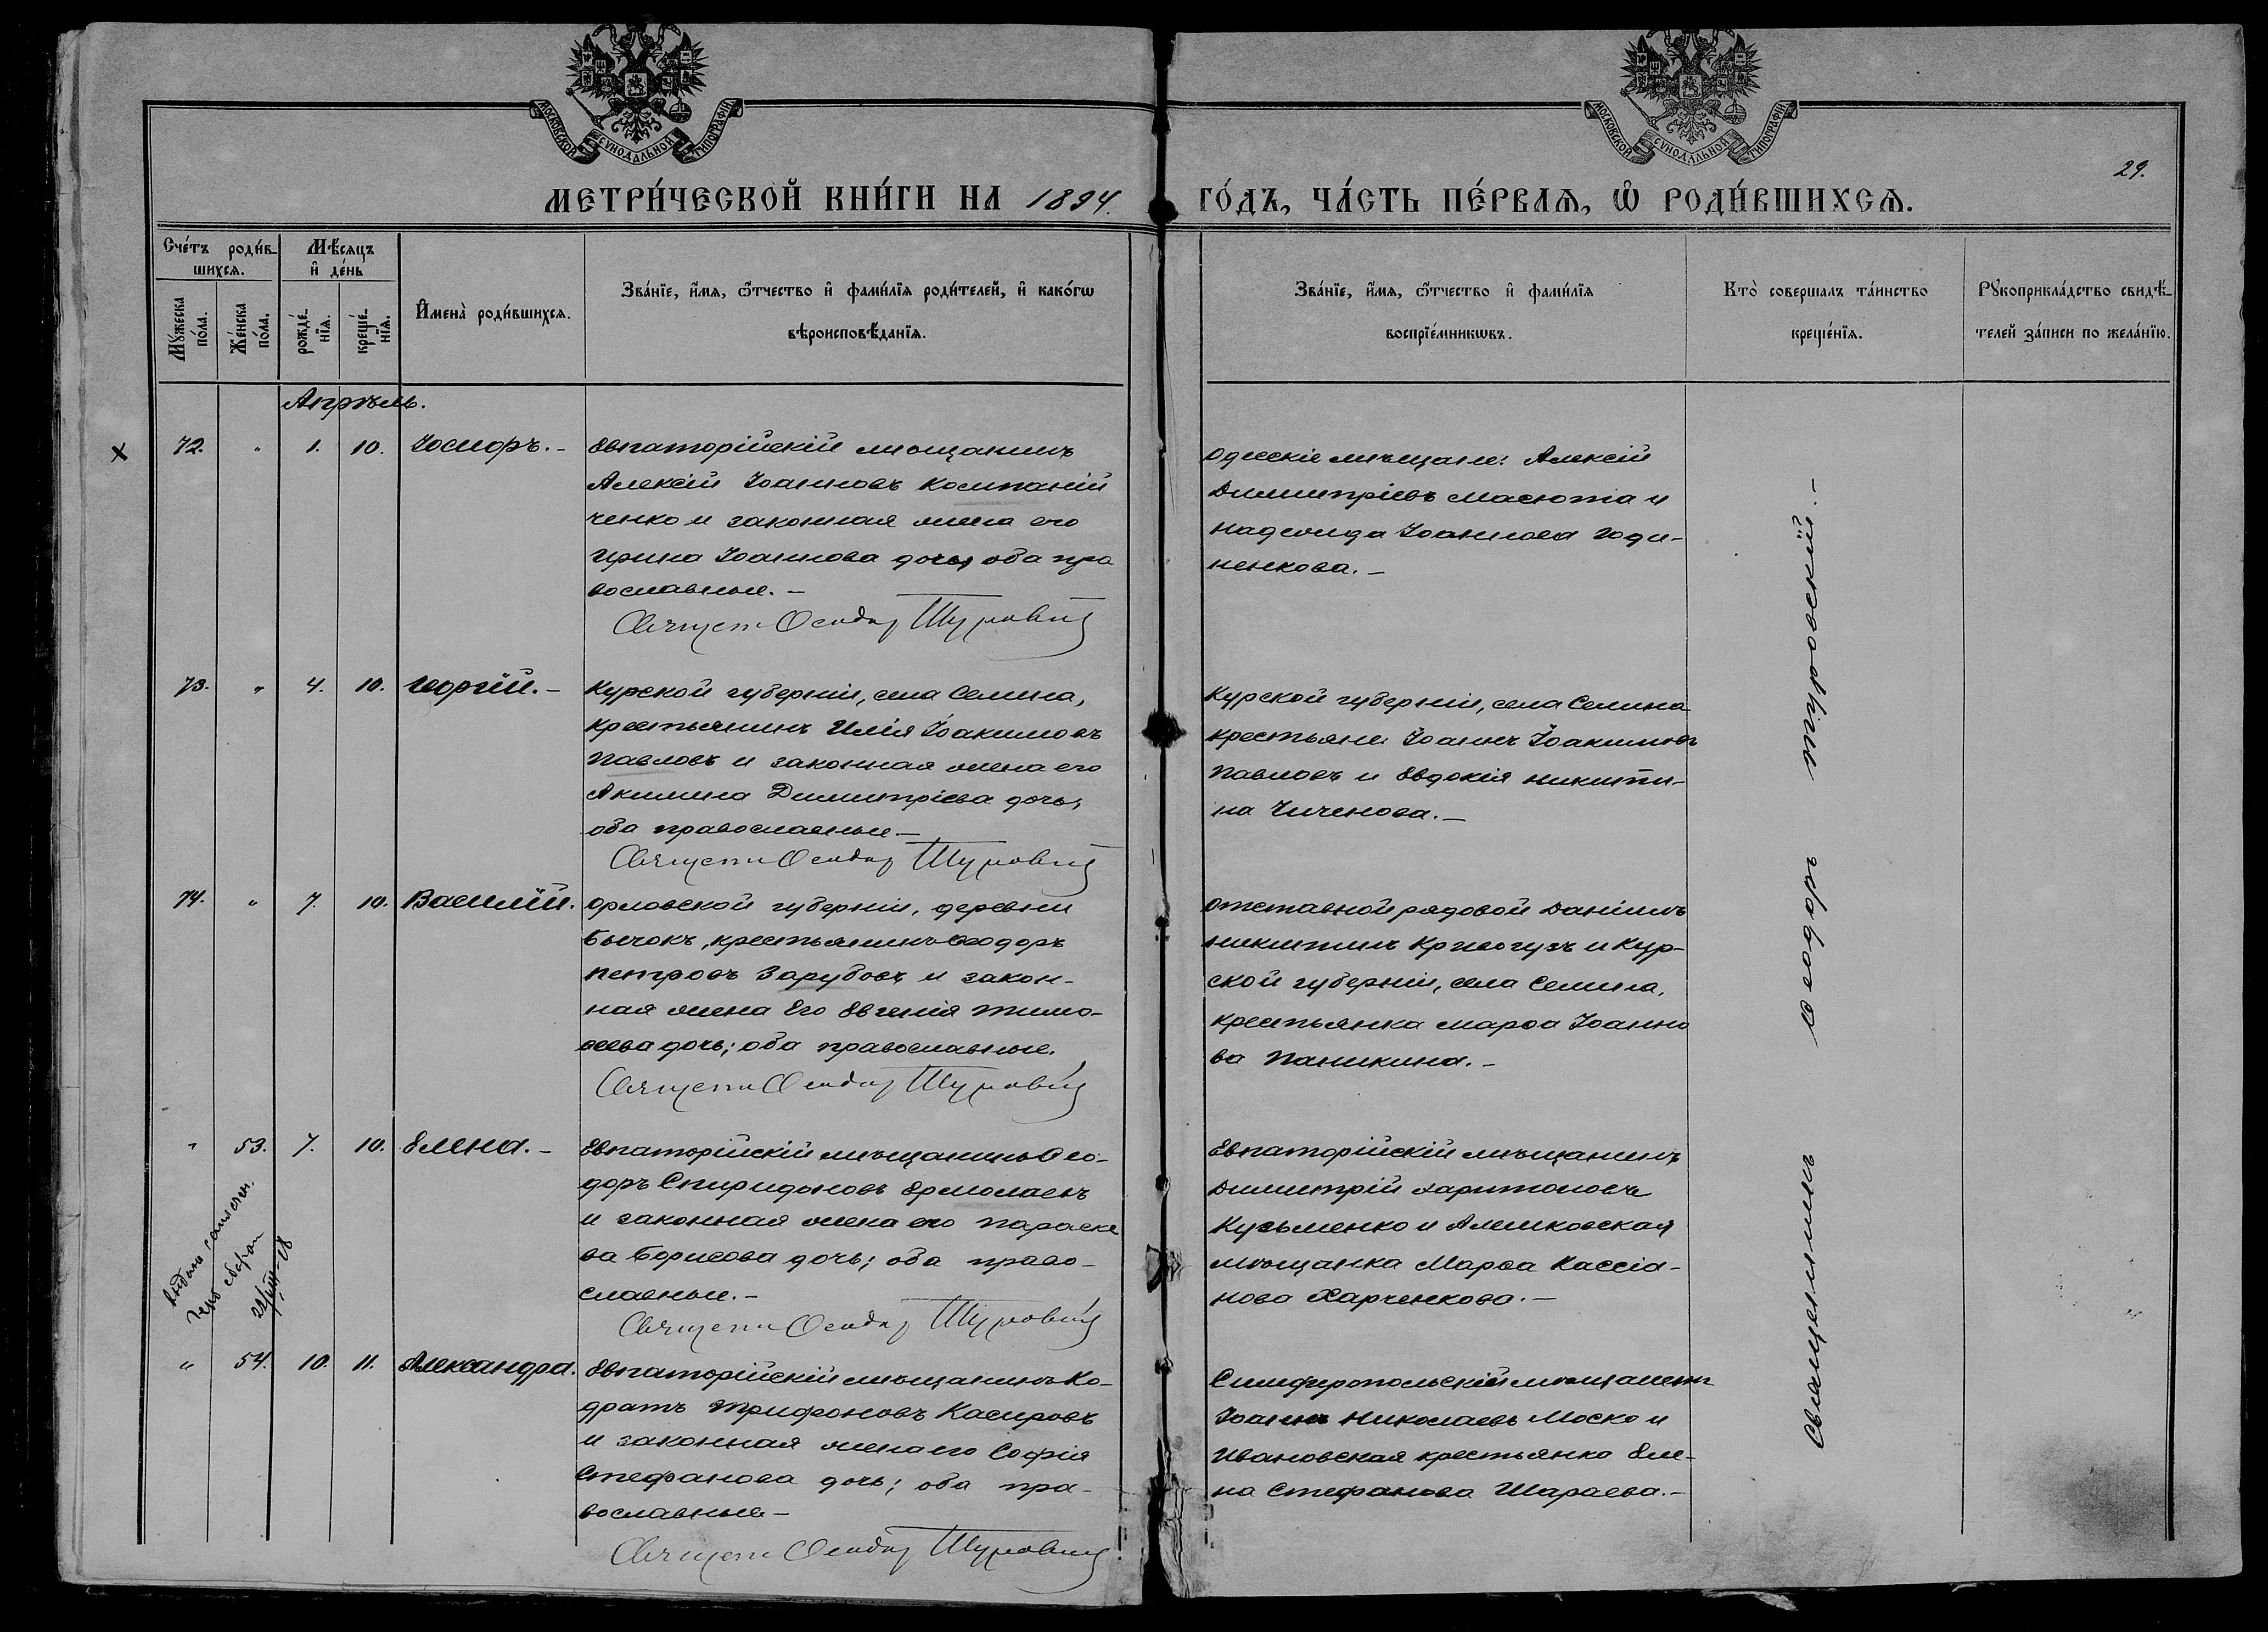 МОСКОВСКОЙ СѴНОДАЛЬНОЙ ТИПОГРАФІИ
МОСКОВСКОЙ СѴНОДАЛЬНОЙ ТИПОГРАФІИ
29.
МЕТРИ́ЧЕСКОЙ КНИ́ГИ НА 1894. ГО́ДЪ, ЧА́СТЬ ПЕ́РВАѦ, Ѡ҆ РОДИ́ВШИХСѦ.
Сче́тъ роди́в-
шихсѧ.
Мѣ́сѧцъ
и҆ де́нь
Мꙋ́жеска
по́ла.
Же́нска
по́ла.
рожде́-
нїѧ.
креще́-
нїѧ.
И҆мена̀ роди́вшихсѧ.
Зва́нїе, и҆́мѧ, ѻ҆́тчество и҆ фами́лїѧ роди́телей, и҆ како́гѡ
вѣроисповѣ́данїѧ.
Зва́нїе, и҆́мѧ, ѻ҆́тчество и҆ фами́лїѧ
воспрїе́мникѡвъ.
Кто̀ соверша́лъ та́инство
креще́нїѧ.
Рꙋкоприкла́дство свидѣ́-
телей за́писи по жела́нїю.
Апрѣль.
72. " 1. 10. Іосифъ.-
Евпаторійскій мѣщанинъ
Алексій Іоанновъ Компаній
ченко и законная жена его
Ирина Іоаннова дочь; оба пра
вославные.-
Священ Ѳеодор Туровскій
Одесскіе мѣщане: Алексій
Димитріевъ Масюта и
Надежда Іоаннова Годи-
ненкова.-
73. " 4. 10. Георгій.-
Курской губерніи, села Семина,
крестьянинъ Илія Іоакимовъ
Павловъ и законная жена его
Акилина Димитріева дочь;
оба православные.-
Священ Ѳеодор Туровскій
Курской губерніи, села Семина
крестьяне Іоаннъ Іоакимовъ
Павловъ и Евдокія Никити-
на Чиченова.-
74. " 7. 10. Василій.
Орловской губерніи, деревни
Бычокъ, крестьянинъ Ѳеодоръ
Петровъ Зарубовъ и закон-
ная жена Его Евгенія Тимо-
ѳеева дочь; оба православные.
Священ Ѳеодор Туровскій
Отставной рядовой Даніилъ
Никитинъ Кривогузъ и Кур-
ской губерніи, села Семина,
крестьянка Марѳа Іоанно
ва Паникина.-
" 53. 7. 10. Елена.-
Евпаторійскій мѣщанинъ Ѳео-
доръ Спиридоновъ Ермолаевъ
и законная жена его Параске
ва Борисова дочь; оба право-
славные.-
Священ Ѳеодор Туровскій
Евпаторійскій мѣщанинъ
Димитрій Харитоновъ
Кузьменко и Алешковская
мѣщанка Марѳа Кассіа-
нова Харченкова.-
" 54. 10. 11. Александра.
Евпаторійскій мѣщанинъ Ко-
дратъ Трифоновъ Касировъ
и законная жена его Софія
Стефанова дочь; оба пра-
вославные-
Священ Ѳеодор Туровскій
Симферопольскій мѣщанинъ
Іоаннъ Николаевъ Моско и
Ивановская крестьянка Еле-
на Стефанова Шараева.-
Священникъ Ѳеодоръ Туровскій.-